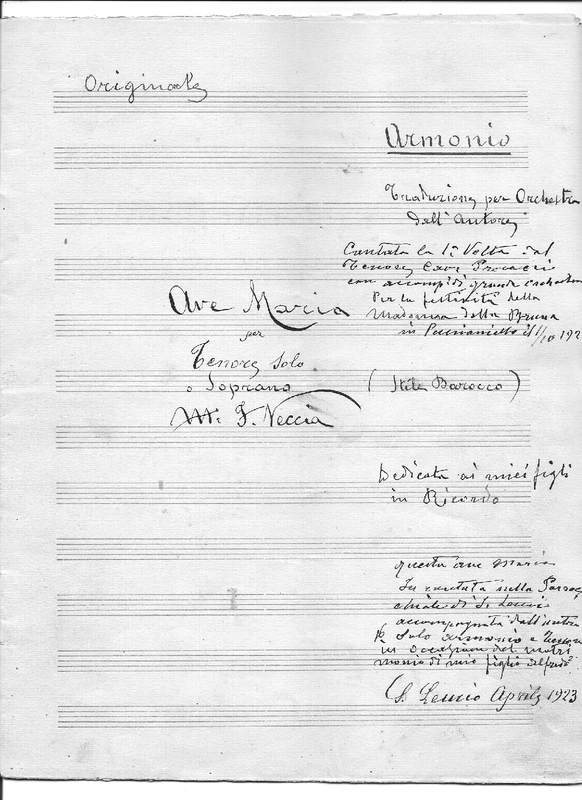 Originale
Armonio
Traduzione per Orchestra
dall'autore
Cantata la 1ª Volta dal
Tenore Cav. Procacci
con accomp. di grande orchestra
Per la festività della
Madonna della Bruna
in il 1/10 192
Ave Maria
per
Tenore Solo
o Soprano
(Stile Barocco)
M. F. Veccia
Dedicata ai miei figli
in Ricordo
questa ave Maria
fu cantata nella Parroc
chiale di S. Leucio
accompagnata dall'autore
Solo armonio e Tenore
in occasione del matri
monio di mio figlio Alfredo
S. Leucio Aprile 1923